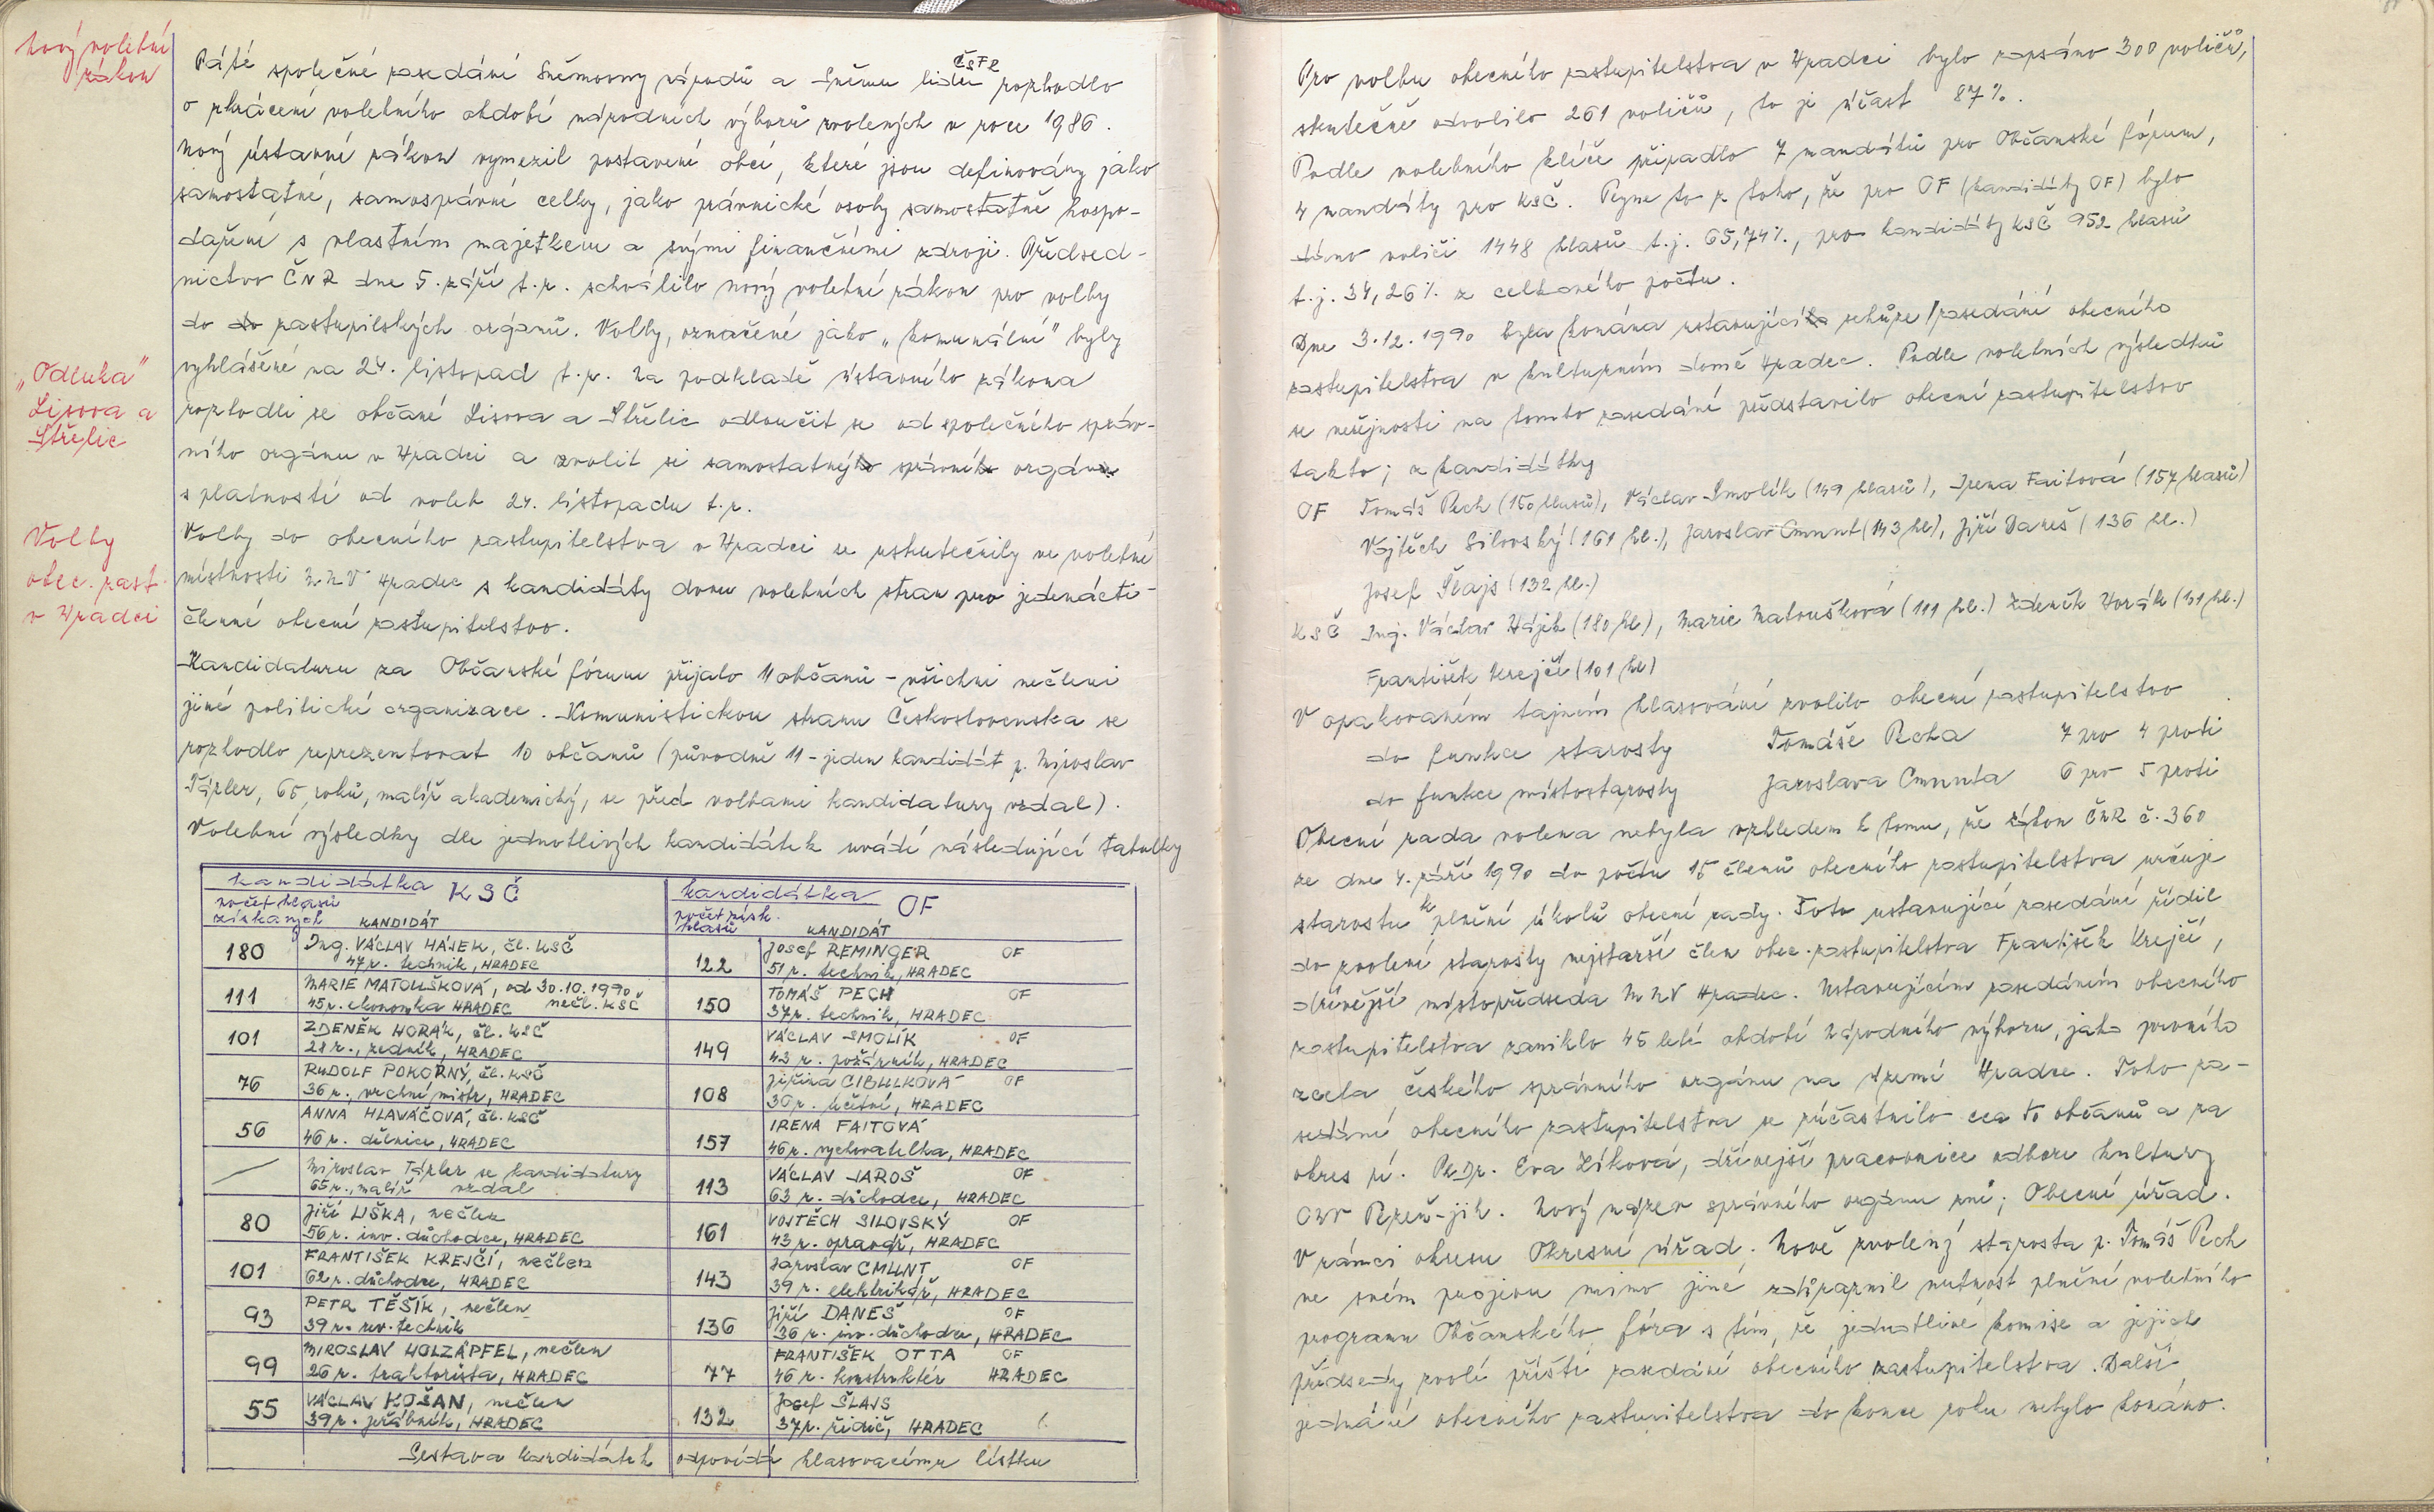 Nový volební
zákon
Páté společné zasedání Sněmovny národů a Sněmu lidu ČSFR rozhodlo
o zkrácení volebního období národních výborů zvolených v roce 1986.
Nový ústavní zákon vymezil postavení obcí, které jsou definovány jako
samostatné, samosprávné celky, jako právnické osoby samostatně hospo-
daření s vlastním majetkem a svými finančními zdroji. Předsed-
nictvo ČNR dne 5. září t.r. schválilo nový volební zákon pro volby
do do zastupilských orgánů. Volby, označené jako „komunální" byly
vyhlášené na 24. listopad t.r. Na podkladě ústavního zákona
„Odluka"
Lisova a
Střelic
rozhodli se občané Lisova a Střelic odloučit se od společného správ-
ního orgánu v Hradci a zvolit si samostatný správní orgán
s platností od voleb 24. listopadu t.r.
Volby
obec. zast.
v Hradci
Volby do obecního zastupitelstva v Hradci se uskutečnily ve volební
místnosti MNV Hradec s kandidáty dvou volebních stran pro jedenácti-
členné obecní zastupitelstvo.
Kandidaturu za Občanské fórum přijalo 11 občanů - všichni nečleni
jiné politické organizace. Komunistickou stranu Československa se
rozhodlo reprezentovat 10 občanů (původně 11 - jeden kandidát p. Miroslav
Tázler, 65 roků, malíř akademický, se před volbami kandidatury vzdal).
Volební výsledky dle jednotlivých kandidátek uvádí následující tabulky
kandidátka KSČ
počet hlasů
získaných KANDIDÁT
180 Ing. VÁCLAV HÁJEK, čl. KSČ
47 r. technik, HRADEC
111 MARIE MATOUŠKOVÁ, od 30.10.1990
45 r. ekonomka HRADEC nečl. KSČ
101 ZDENĚK HORÁK, čl. KSČ
28 r., zedník, HRADEC
76 RUDOLF POKORNÝ, čl. KSČ
36 r., vrchní mistr, HRADEC
56 ANNA HLAVÁČOVÁ, čl. KSČ
46 r. dělnice, HRADEC
Miroslav Tázler se kandidatury
65 r., malíř vzdal
80 Jiří LIŠKA, nečlen
56 r. inv. důchodce, HRADEC
101 FRANTIŠEK KREJČÍ, nečlen
62 r. důchodce, HRADEC
93 PETR TĚŠÍK, nečlen
39 r. rev. technik
99 MIROSLAV HOLZÄPFEL, nečlen
26 r. traktorista, HRADEC
55 VÁCLAV KOŠAN, nečlen
39 r. jeřábník, HRADEC
kandidátka OF
počet získ.
hlasů KANDIDÁT
122 Josef REMINGER OF
51 r. technik, HRADEC
150 TOMÁŠ PECH OF
37 r. technik, HRADEC
149 VÁCLAV SMOLÍK OF
43 r. požárník, HRADEC
108 Jiřina CIBULKOVÁ OF
36 r. účetní, HRADEC
157 IRENA FAITOVÁ
46 r. vychovatelka, HRADEC
113 VÁCLAV JAROŠ OF
63 r. důchodce, HRADEC
161 VOJTĚCH SILOVSKÝ OF
43 r. opravář, HRADEC
143 Jaroslav CMUNT OF
39 r. elektrikář, HRADEC
136 Jiří DANEŠ OF
36 r. inv. důchodce, HRADEC
77 FRANTIŠEK OTTA OF
46 r. konstruktér HRADEC
132 Josef ŠLAJS
37 r. řidič, HRADEC
Sestava kandidátek odpovídá hlasovacímu lístku
Pro volbu obecního zastupitelstva v Hradci bylo zapsáno 300 voličů,
skutečně odvolilo 261 voličů, to je účast 87%.
Podle volebního klíče připadlo 7 mandátů pro Občanské fórum,
4 mandáty pro KSČ. Plyne to z toho, že pro OF (kandidáty OF) bylo
dáno voliči 1448 hlasů t.j. 65,74%, pro kandidáty KSČ 952 hlasů
t.j. 34,26% z celkového počtu.
Dne 3.12.1990 byla konána ustavující schůze/zasedání obecního
zastupitelstva v kulturním domě Hradec. Podle volebních výsledků
se veřejnosti na tomto zasedání představilo obecní zastupitelstvo
takto; z kandidátky
OF Tomáš Pech (150 hlasů), Václav Smolík (149 hlasů), Irena Faitová (157 hlasů)
Vojtěch Silovský (161 hl.), Jaroslav Cmunt (143 hl), Jiří Daneš (136 hl.)
Josef Šlajs (132 hl.)
KSČ Ing. Václav Hájek (180 hl), Marie Matoušková (111 hl.) Zdeněk Horák (101 hl.)
František Krejčí (101 hl)
V opakovaném tajném hlasování zvolilo obecní zastupitelstvo
do funkce starosty Tomáše Pecha 7 pro 4 proti
do funkce místostarosty Jaroslava Cmunta 6 pro 5 proti
Obecní rada volena nebyla vzhledem k tomu, že zákon ČNR č. 360
ze dne 4. září 1990 do počtu 15 členů obecního zastupitelstva určuje
starostu k plnění úkolů obecní rady. Toto ustavující zasedání řídil
do zvolení starosty nejstarší člen obec. zastupitelstva František Krejčí,
dřívější místopředseda MNV Hradec. Ustavujícím zasedáním obecního
zastupitelstva zaniklo 45 leté období Národního výboru, jako prvního
zcela českého správního orgánu na území Hradce. Toho za-
sedání obecního zastupitelstva se zúčastnilo cca 50 občanů a za
okres pí. PhDr. Eva Zíková, dřívější pracovnice odboru kultury
ONV Plzeň-jih. Nový název správního orgánu zní; Obecní úřad.
V rámci okresu Okresní úřad. Nově zvolený starosta p. Tomáš Pech
ve svém projevu mimo jiné zdůraznil nutnost plnění volebního
programu Občanského fóra s tím, že jednotlivé komise a jejich
předsedy zvolí příští zasedání obecního zastupitelstva. Další
jednání obecního zastupitelstva do konce roku nebylo konáno.